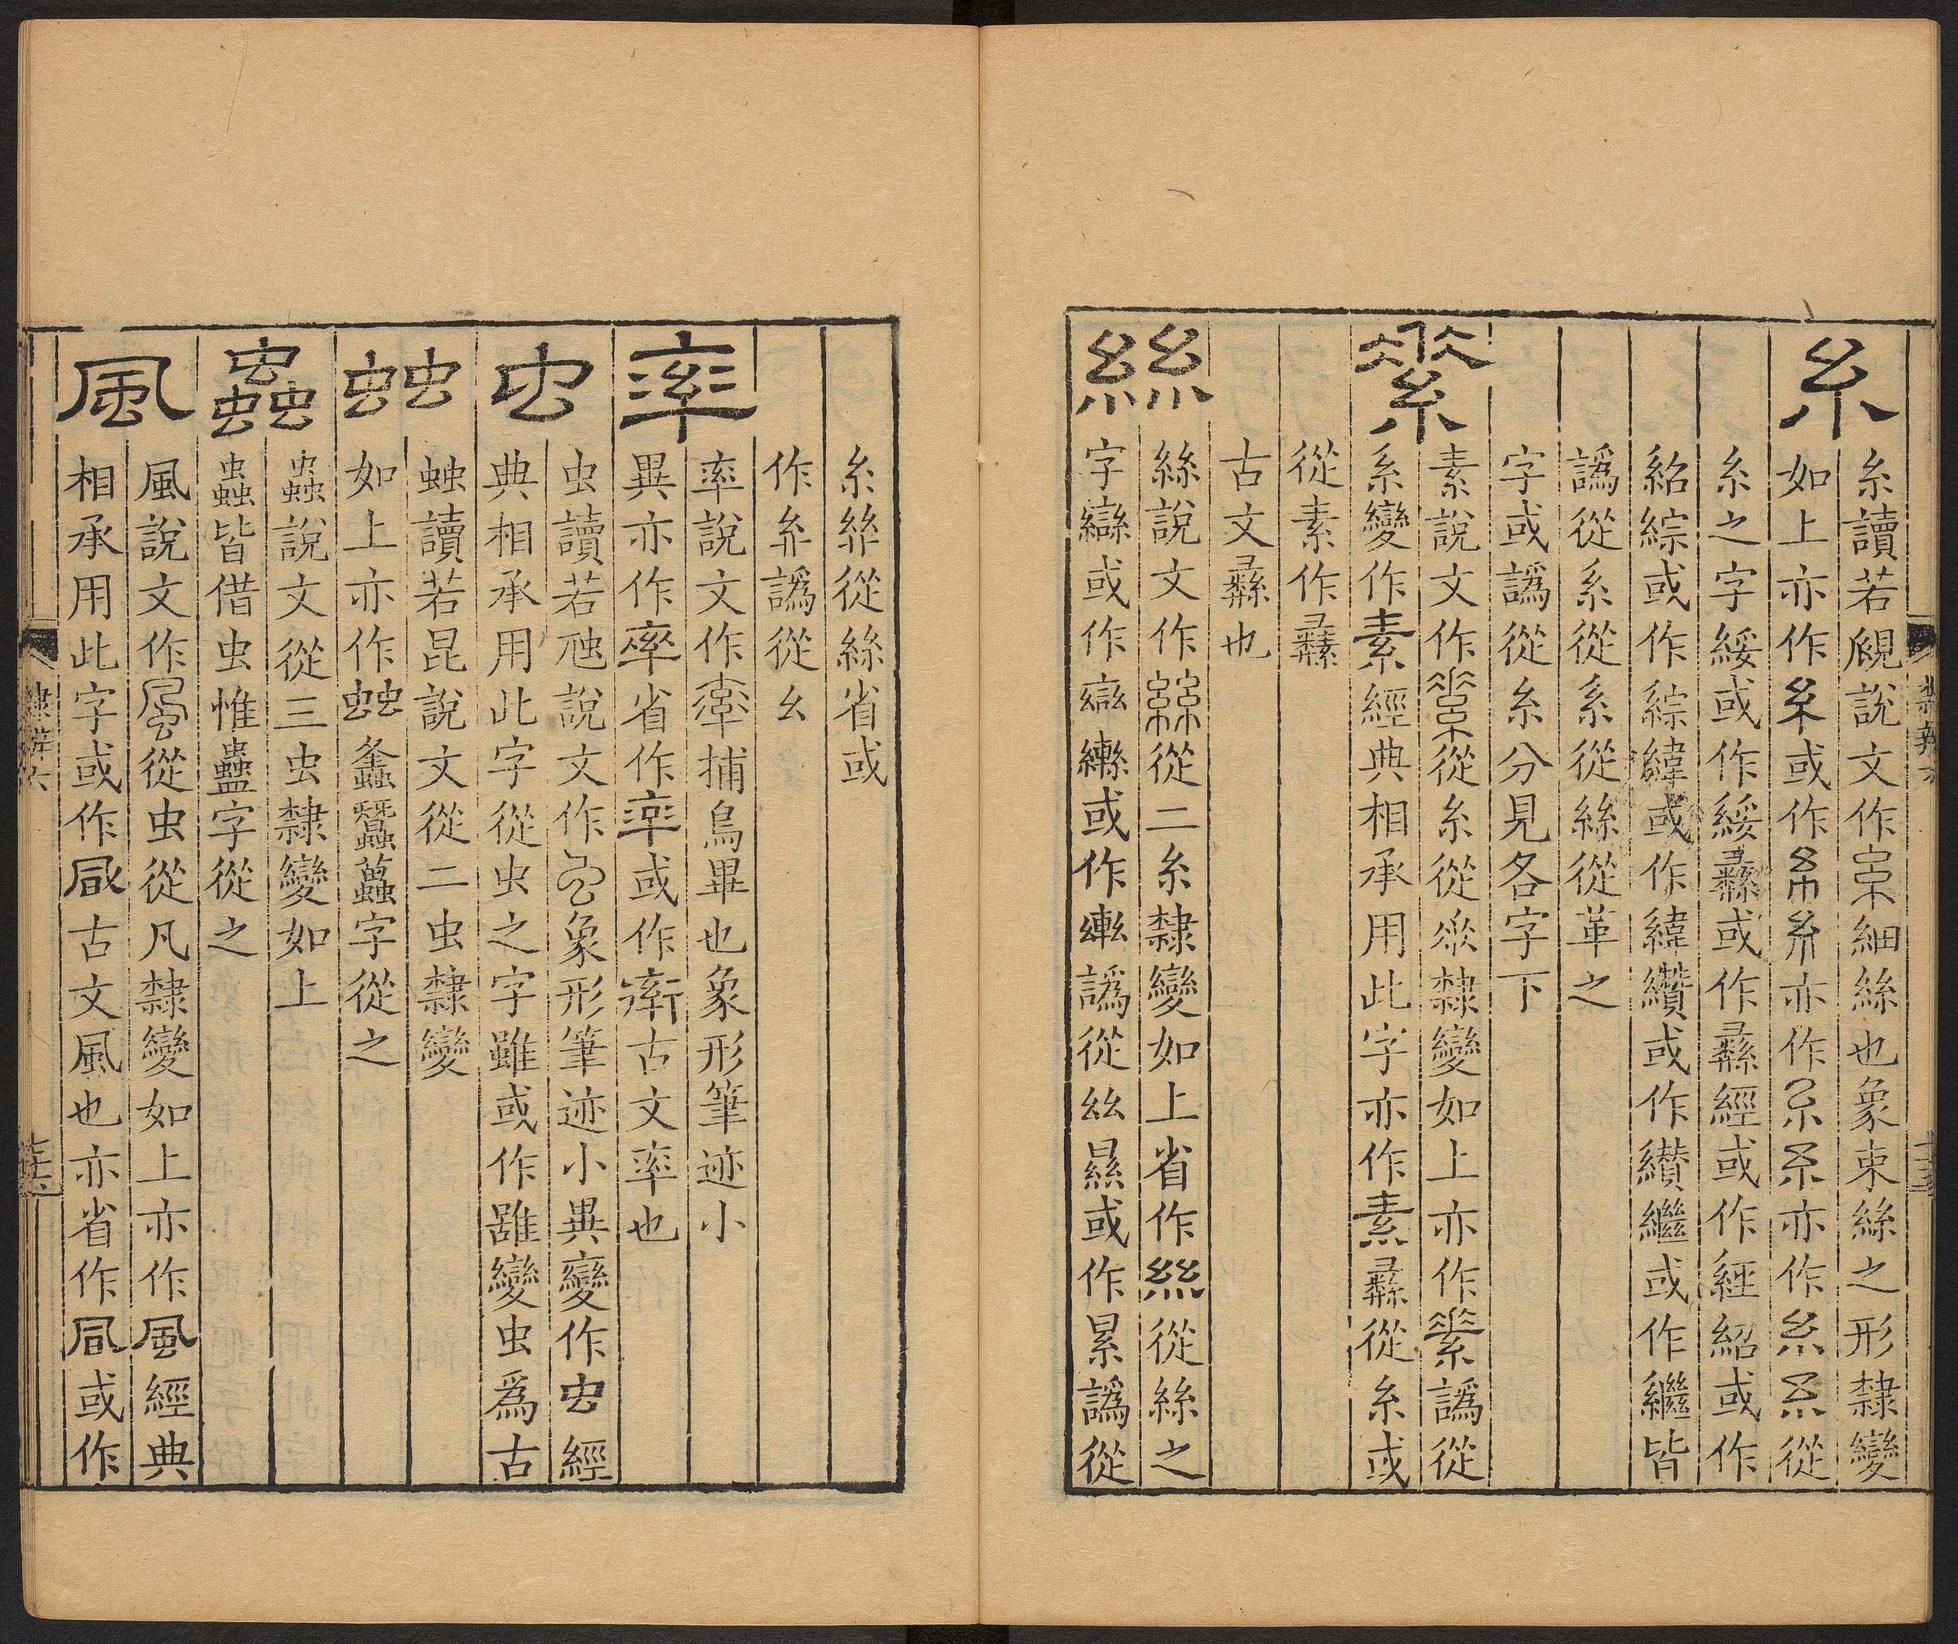 糸
糸讀若覛說文作糸細絲也象束絲之形隸變
如上亦作糸或作糸糸亦作糸糸亦作糸糸從
糸之字綏或作綏彞或作彞經或作經紹或作
紹綜或作綜緯或作緯纘或作纘繼或作繼皆
譌從系從系從絲從革之
字或譌從糸分見各字下
素
素說文作素從糸從𠂹隸變如上亦作素譌從
系變作素經典相承用此字亦作素彞從糸或
從素作彞
古文彞也
絲
絲說文作絲從二糸隸變如上省作絲從絲之
字䜌或作䜌轡或作轡譌從𢆶㬎或作累譌從
糸𦀗從絲省或
作𢇇譌從幺
率
率說文作率捕鳥畢也象形筆迹小
異亦作率省作率或作𧗿古文率也
虫
虫讀若虺說文作虫象形筆迹小異變作虫經
典相承用此字從虫之字雖或作雖變虫爲古
䖵
䖵讀若昆說文從二虫隸變
如上亦作䖵螽蠶蠆字從之
蟲
蟲說文從三虫隸變如上
蟲皆借虫惟蠱字從之
風
風說文作風從虫從凡隸變如上亦作風經典
相承用此字或作凬古文風也亦省作凬或作
隸辨六